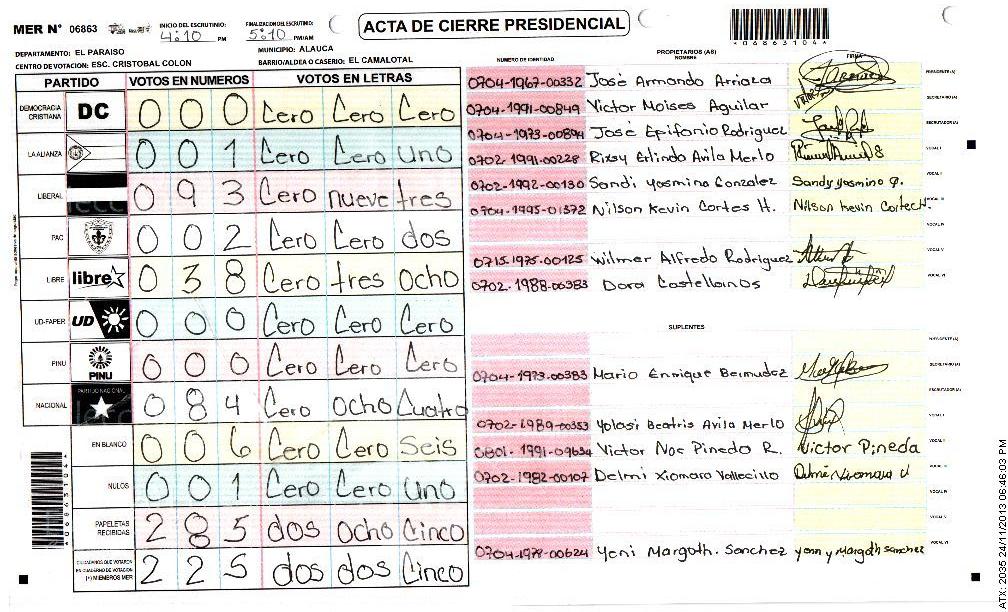 MER Nº 06863
INICIO DEL ESCRUTINIO:
4:10 PM
FINALIZACION DEL ESCRUTINIO:
5:10 PM/AM
ACTA DE CIERRE PRESIDENCIAL
*06863104*
DEPARTAMENTO: EL PARAISO
MUNICIPIO: ALAUCA
CENTRO DE VOTACION: ESC. CRISTOBAL COLON
BARRIO/ALDEA O CASERIO: EL CAMALOTAL
PARTIDO VOTOS EN NUMEROS VOTOS EN LETRAS
DEMOCRACIA CRISTIANA DC 0 0 0 Cero Cero Cero
LA ALIANZA 0 0 1 Cero Cero uno
LIBERAL 0 9 3 Cero nueve tres
PAC 0 0 2 Cero Cero dos
LIBRE libre 0 3 8 Cero tres ocho
UD-FAPER UD 0 0 0 Cero Cero Cero
PINU PINU 0 0 0 Cero Cero Cero
NACIONAL PARTIDO NACIONAL 0 8 4 Cero ocho Cuatro
EN BLANCO 0 0 6 Cero Cero seis
NULOS 0 0 1 Cero Cero uno
PAPELETAS RECIBIDAS 2 8 5 dos ocho Cinco
CIUDADANOS QUE VOTARON EN CUADERNO DE VOTACION (+) MIEMBROS MER 2 2 5 dos dos Cinco
PROPIETARIOS (AS)
NUMERO DE IDENTIDAD NOMBRE FIRMA
0704-1967-00332 José Armando Arriaza PRESIDENTE(A)
0704-1991-00849 Victor Moises Aguilar SECRETARIO(A)
0704-1973-00894 José Epifanio Rodriguez ESCRUTADOR(A)
0702-1991-00228 Rixsy Erlindo Avila Merlo VOCAL I
0702-1992-00130 Sandi Yosmina Gonzalez Sandy Yosmina G. VOCAL II
0704-1995-01372 Nilson Kevin Cortes H. Nilson Kevin Cortes H. VOCAL III
VOCAL IV
0715-1975-00125 Wilmer Alfredo Rodriguez VOCAL V
0702-1988-00383 Dora Castellanos VOCAL VI
SUPLENTES
PRESIDENTE(A)
0704-1973-00383 Mario Enrique Bermudez SECRETARIO(A)
ESCRUTADOR(A)
0702-1989-00353 Yolasi Beatris Avila Merlo VOCAL I
0801-1991-09634 Victor Noe Pineda R. Victor Pineda VOCAL II
0702-1982-00107 Delmi Xiomara Vallecillo VOCAL III
VOCAL IV
VOCAL V
0704-1978-00624 Yeni Margoth. Sanchez yenny Margoth Sanchez VOCAL VI
*06863104*
ATX: 2035 24/11/2013 06:46:03 PM